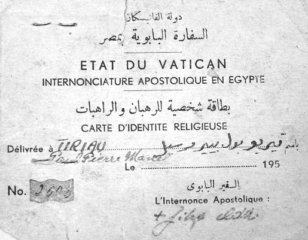 دولة الفاتيكان
السفارة البابوية بمصر
ETAT DU VATICAN
INTERNONCIATURE APOSTOLIQUE EN EGYPTE
بطاقة شخصية للرهبان والراهبات
CARTE D'IDENTITE RELIGIEUSE
Délivrée à TIRIAU
Paul Pierre Marcel
Le 195
No.
السفير البابوى
L'Internonce Apostolique :